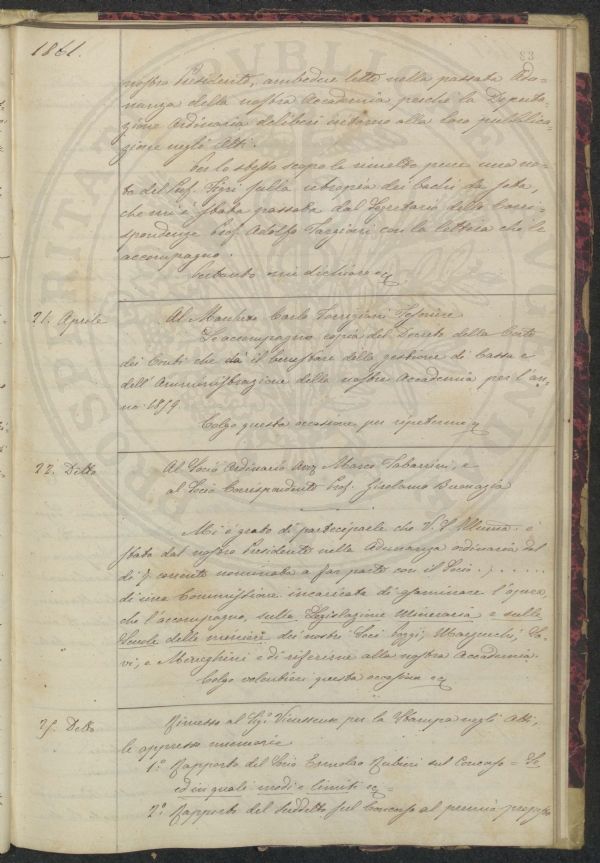 1861.
83
nostro Presidente, ambedue lette nella passata Adu-
nanza della nostra Accademia, perchè la Deputa-
zione Ordinaria deliberi intorno alla loro pubblica-
zione negli Atti.
Per lo stesso scopo le rimetto pure una no-
ta del Prof. sulla dei bachi da seta,
che mi è stata passata dal Segretario delle Corri-
spondenze Prof. Adolfo Targioni con la lettera che la
accompagna.
Intanto mi dichiaro
21. Aprile
Al Marchese Carlo Torrigiani Tesoriere
Le accompagno copia del Decreto della Corte
dei Conti che dà il benestare della gestione di Cassa e
dell'Amministrazione della nostra Accademia per l'an-
no 1859.
Colgo questa occasione per ripetermi
22. Detto
Al Socio Ordinario Avv. Marco Tabarrini, e
al Socio Corrispondente Prof. Girolamo Buonazia
Mi è grato di parteciparle che V. S. è
stata dal nostro Presidente nella Adunanza ordinaria del
dì 7 corrente nominata a far parte con il Socio . . . . . .
di una Commissione incaricata di esaminare l'opera,
che l'accompagno, sulla Legislazione Mineraria e sulle
Scuole delle miniere dei nostri Soci Poggi, Marzucchi, Sa-
vi, e Meneghini e di riferirne alla nostra Accademia.
Colgo volentieri questa occasione
25. Detto
Rimesso al Sig. Vieusseux per la Stampa negli Atti,
le appresso memorie
1º Rapporto del Socio Ermolao Rubieri sul Concorso = Se
ed in quali modi e limiti
2º Rapporto del Suddetto sul Concorso al premio proposto